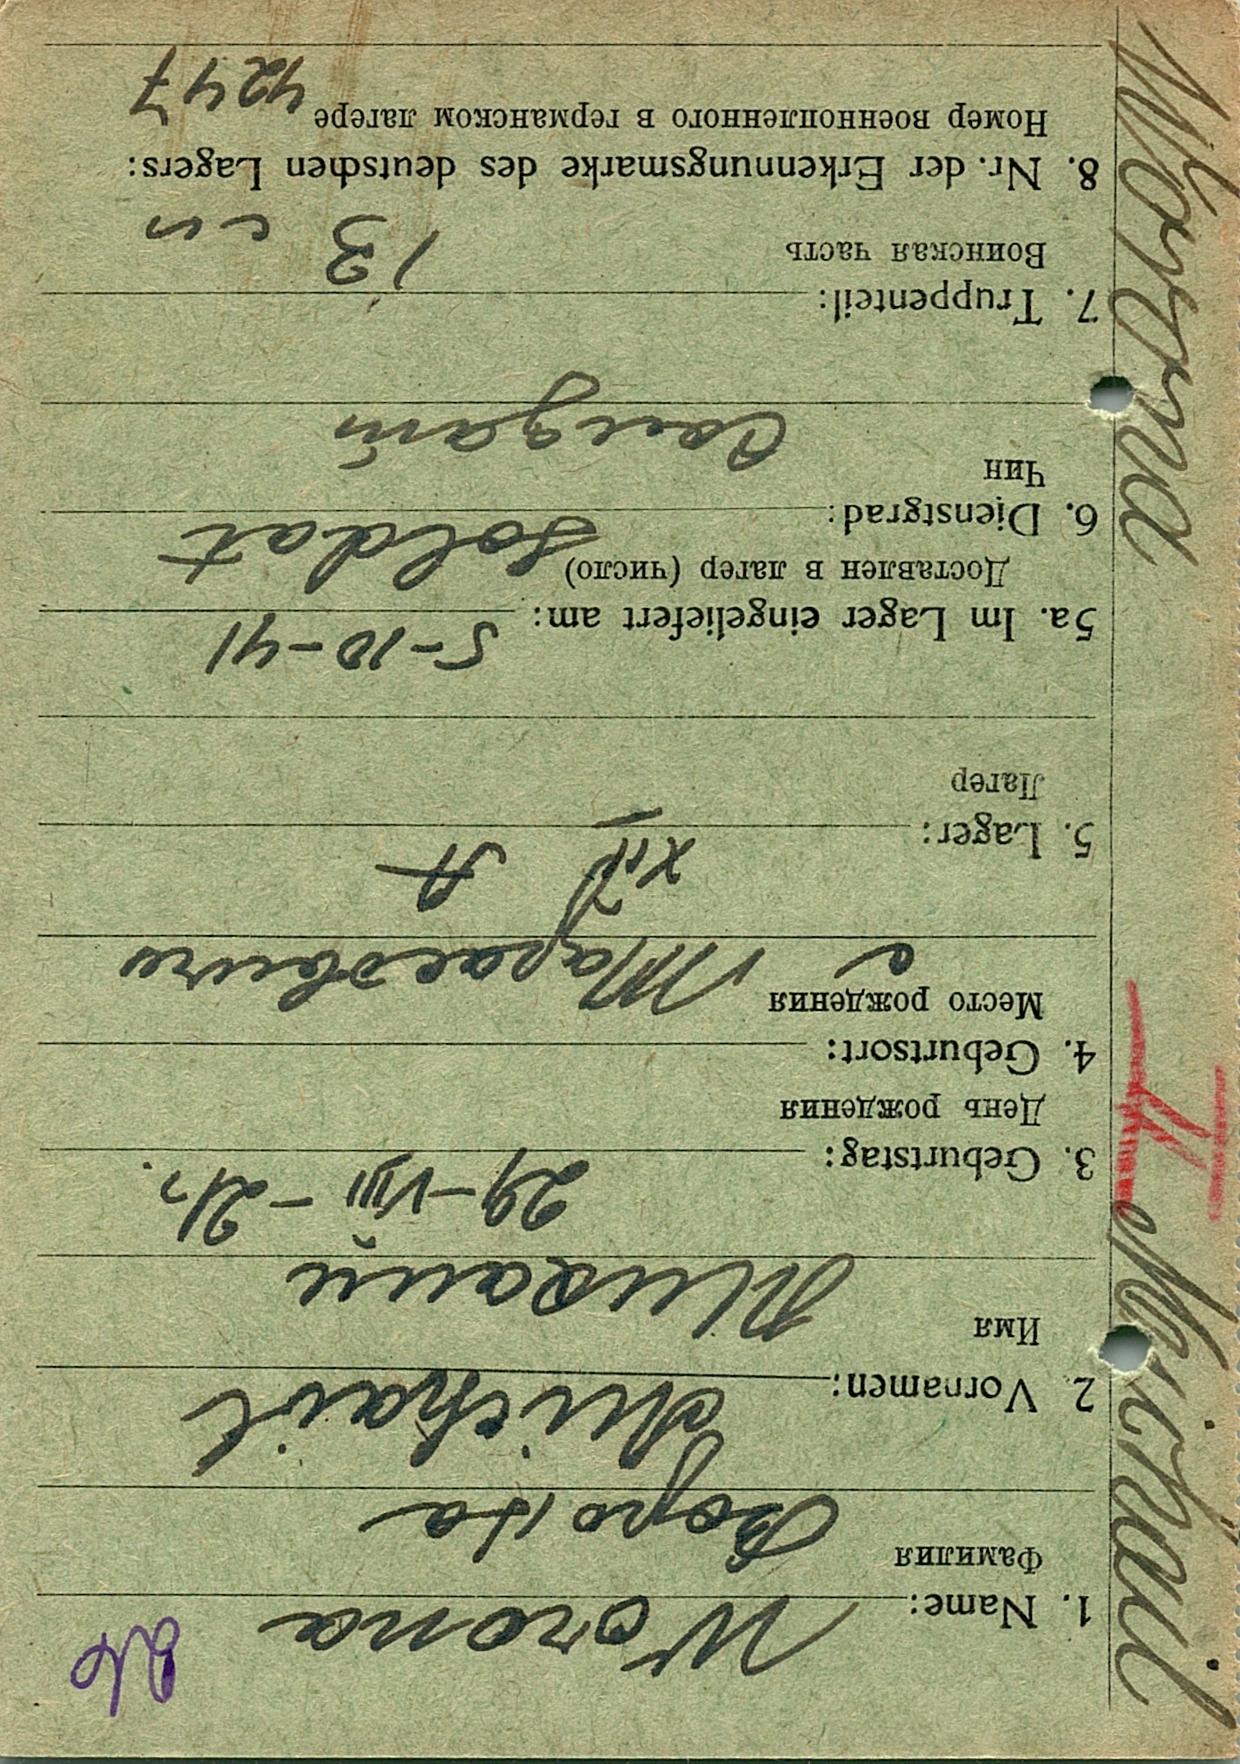 1. Name: Worona
Фамилия Ворона
2. Vornamen: Michail
Имя Михаил
3. Geburtstag: 29-VIII-21г.
День рождения
4. Geburtsort:
Место рождения с Тарасовичи
5. Lager: XIV A
Лагер
5a. Im Lager eingeliefert am: 5-10-41
Доставлен в лагер (число)
6. Dienstgrad: Soldat
Чин Солдат
7. Truppenteil: 13 сп
Воинская часть
8. Nr. der Erkennungsmarke des deutschen Lagers:
Номер военнопленного в германском лагере 4247
Michail Worona
II